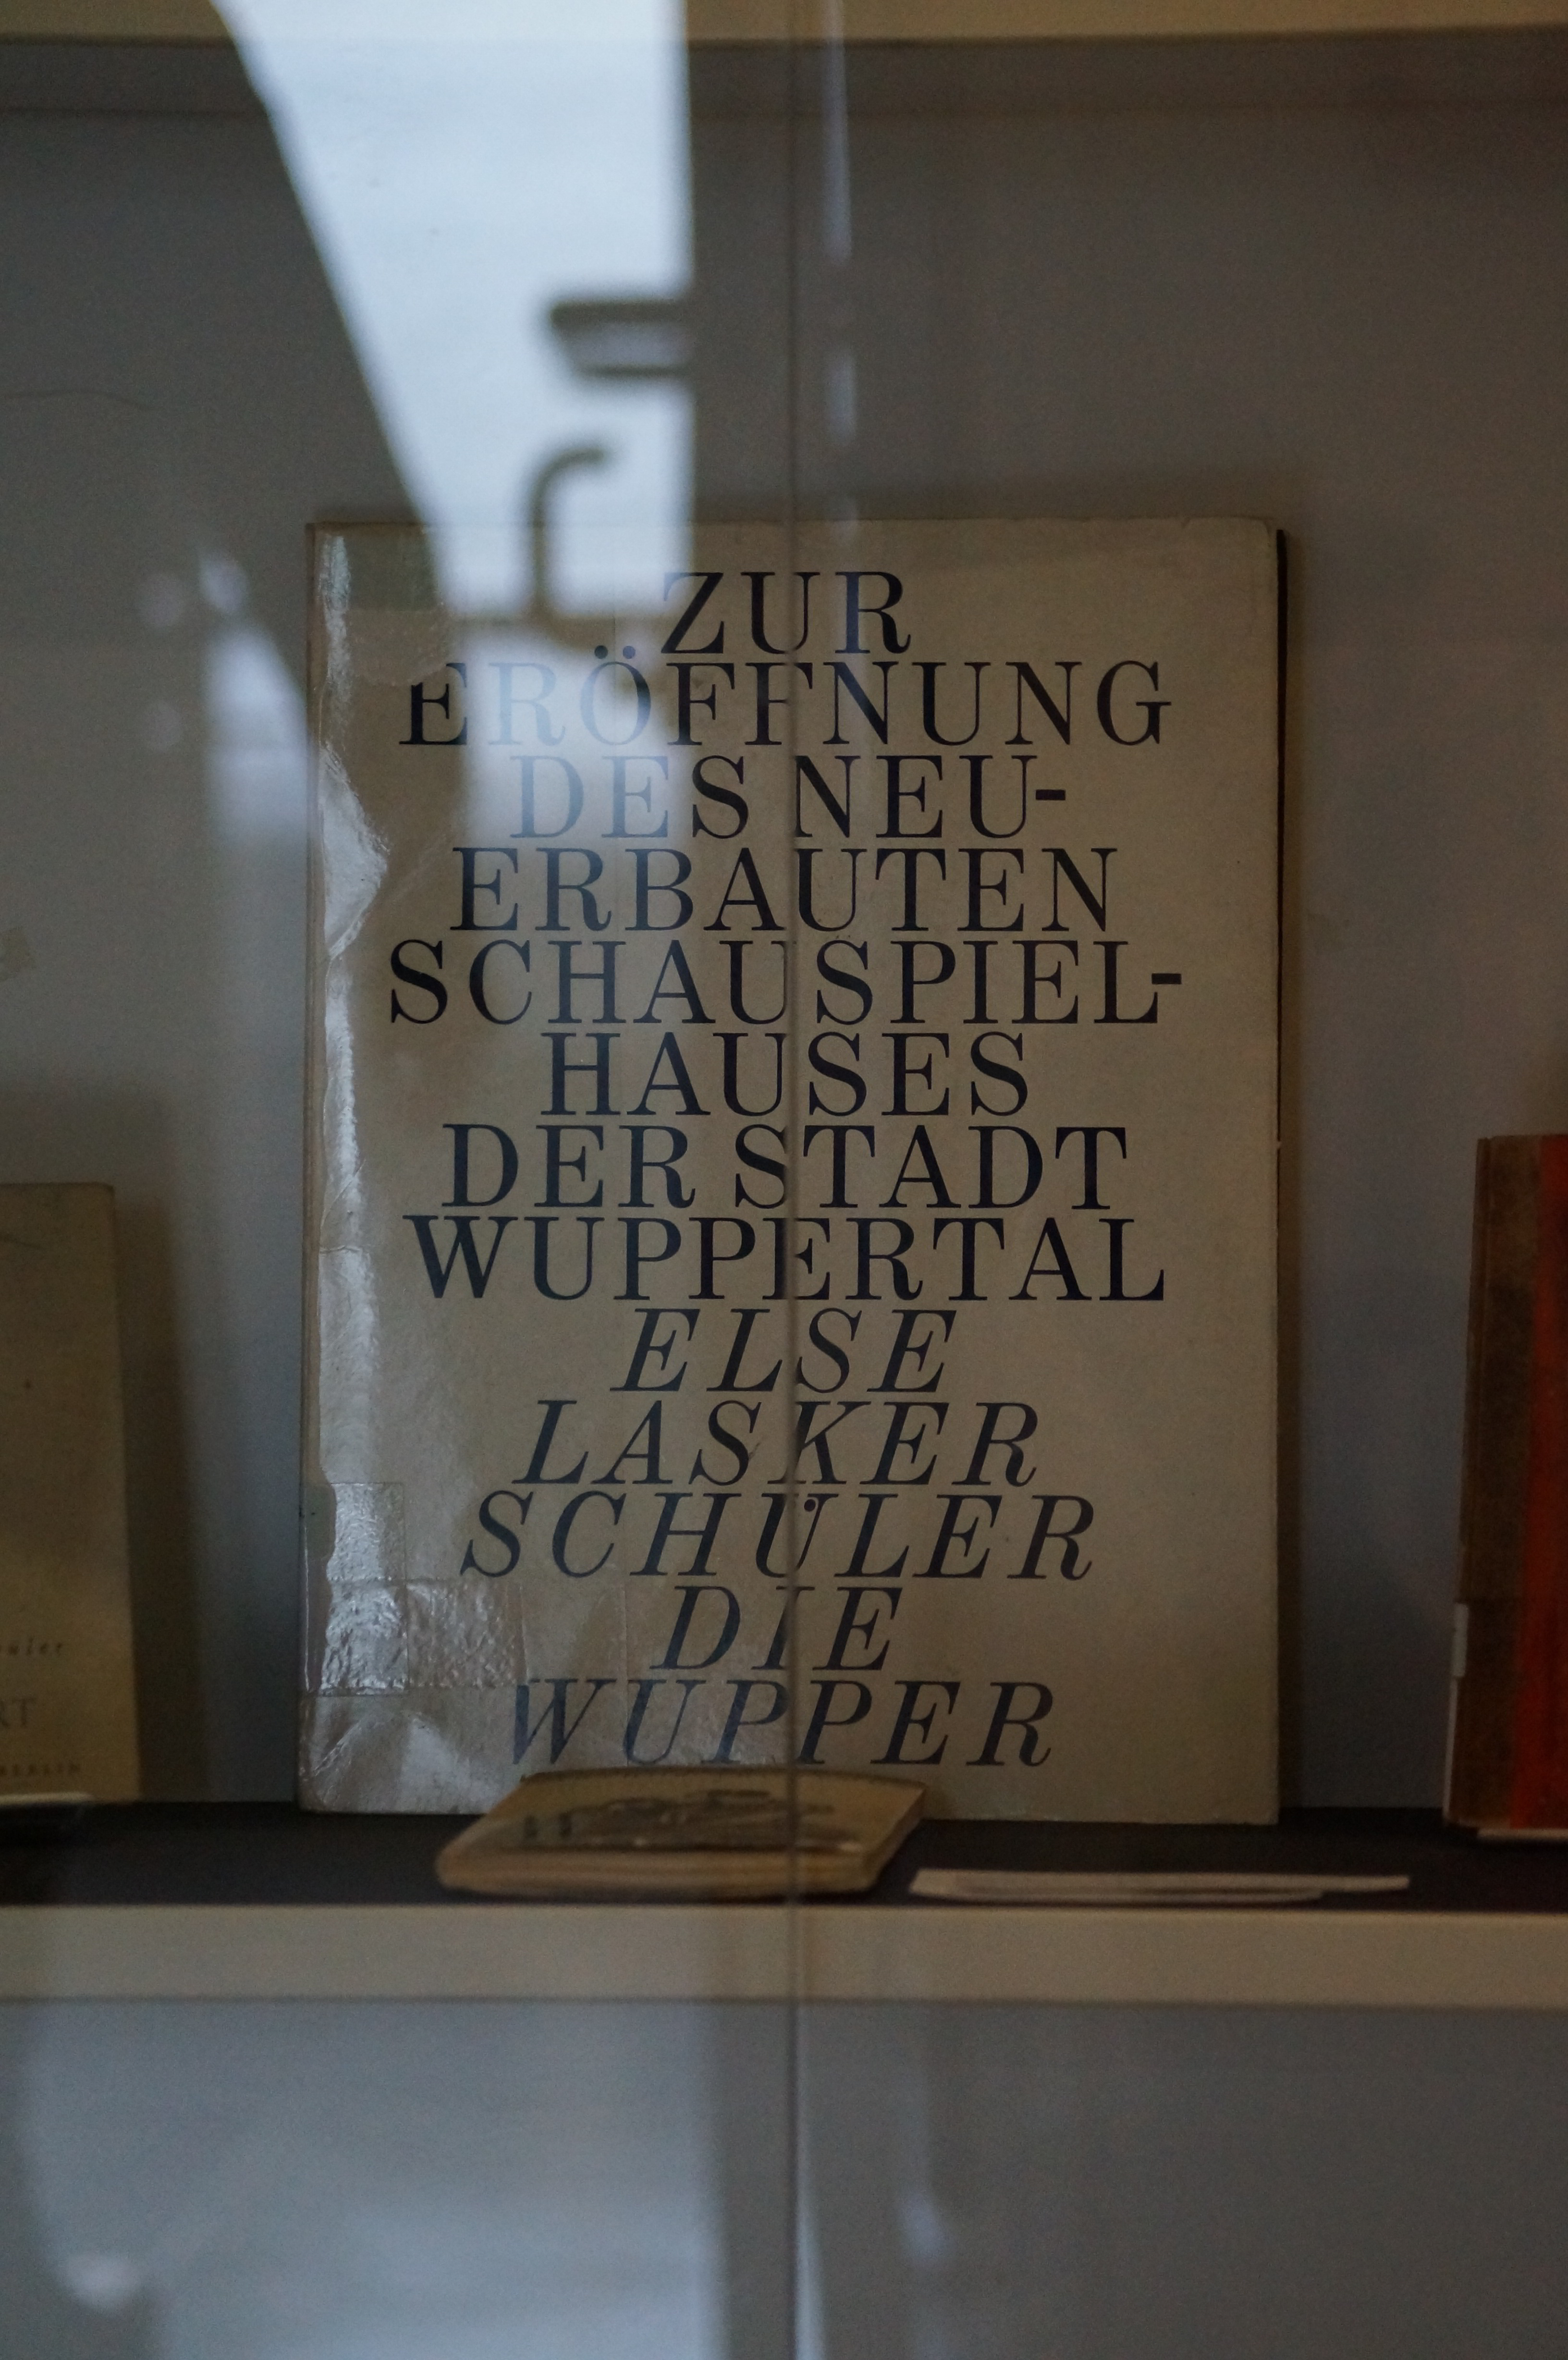 ZUR
ERÖFFNUNG
DES NEU-
ERBAUTEN
SCHAUSPIEL-
HAUSES
DER STADT
WUPPERTAL
ELSE
LASKER
SCHÜLER
DIE
WUPPER
BERLIN